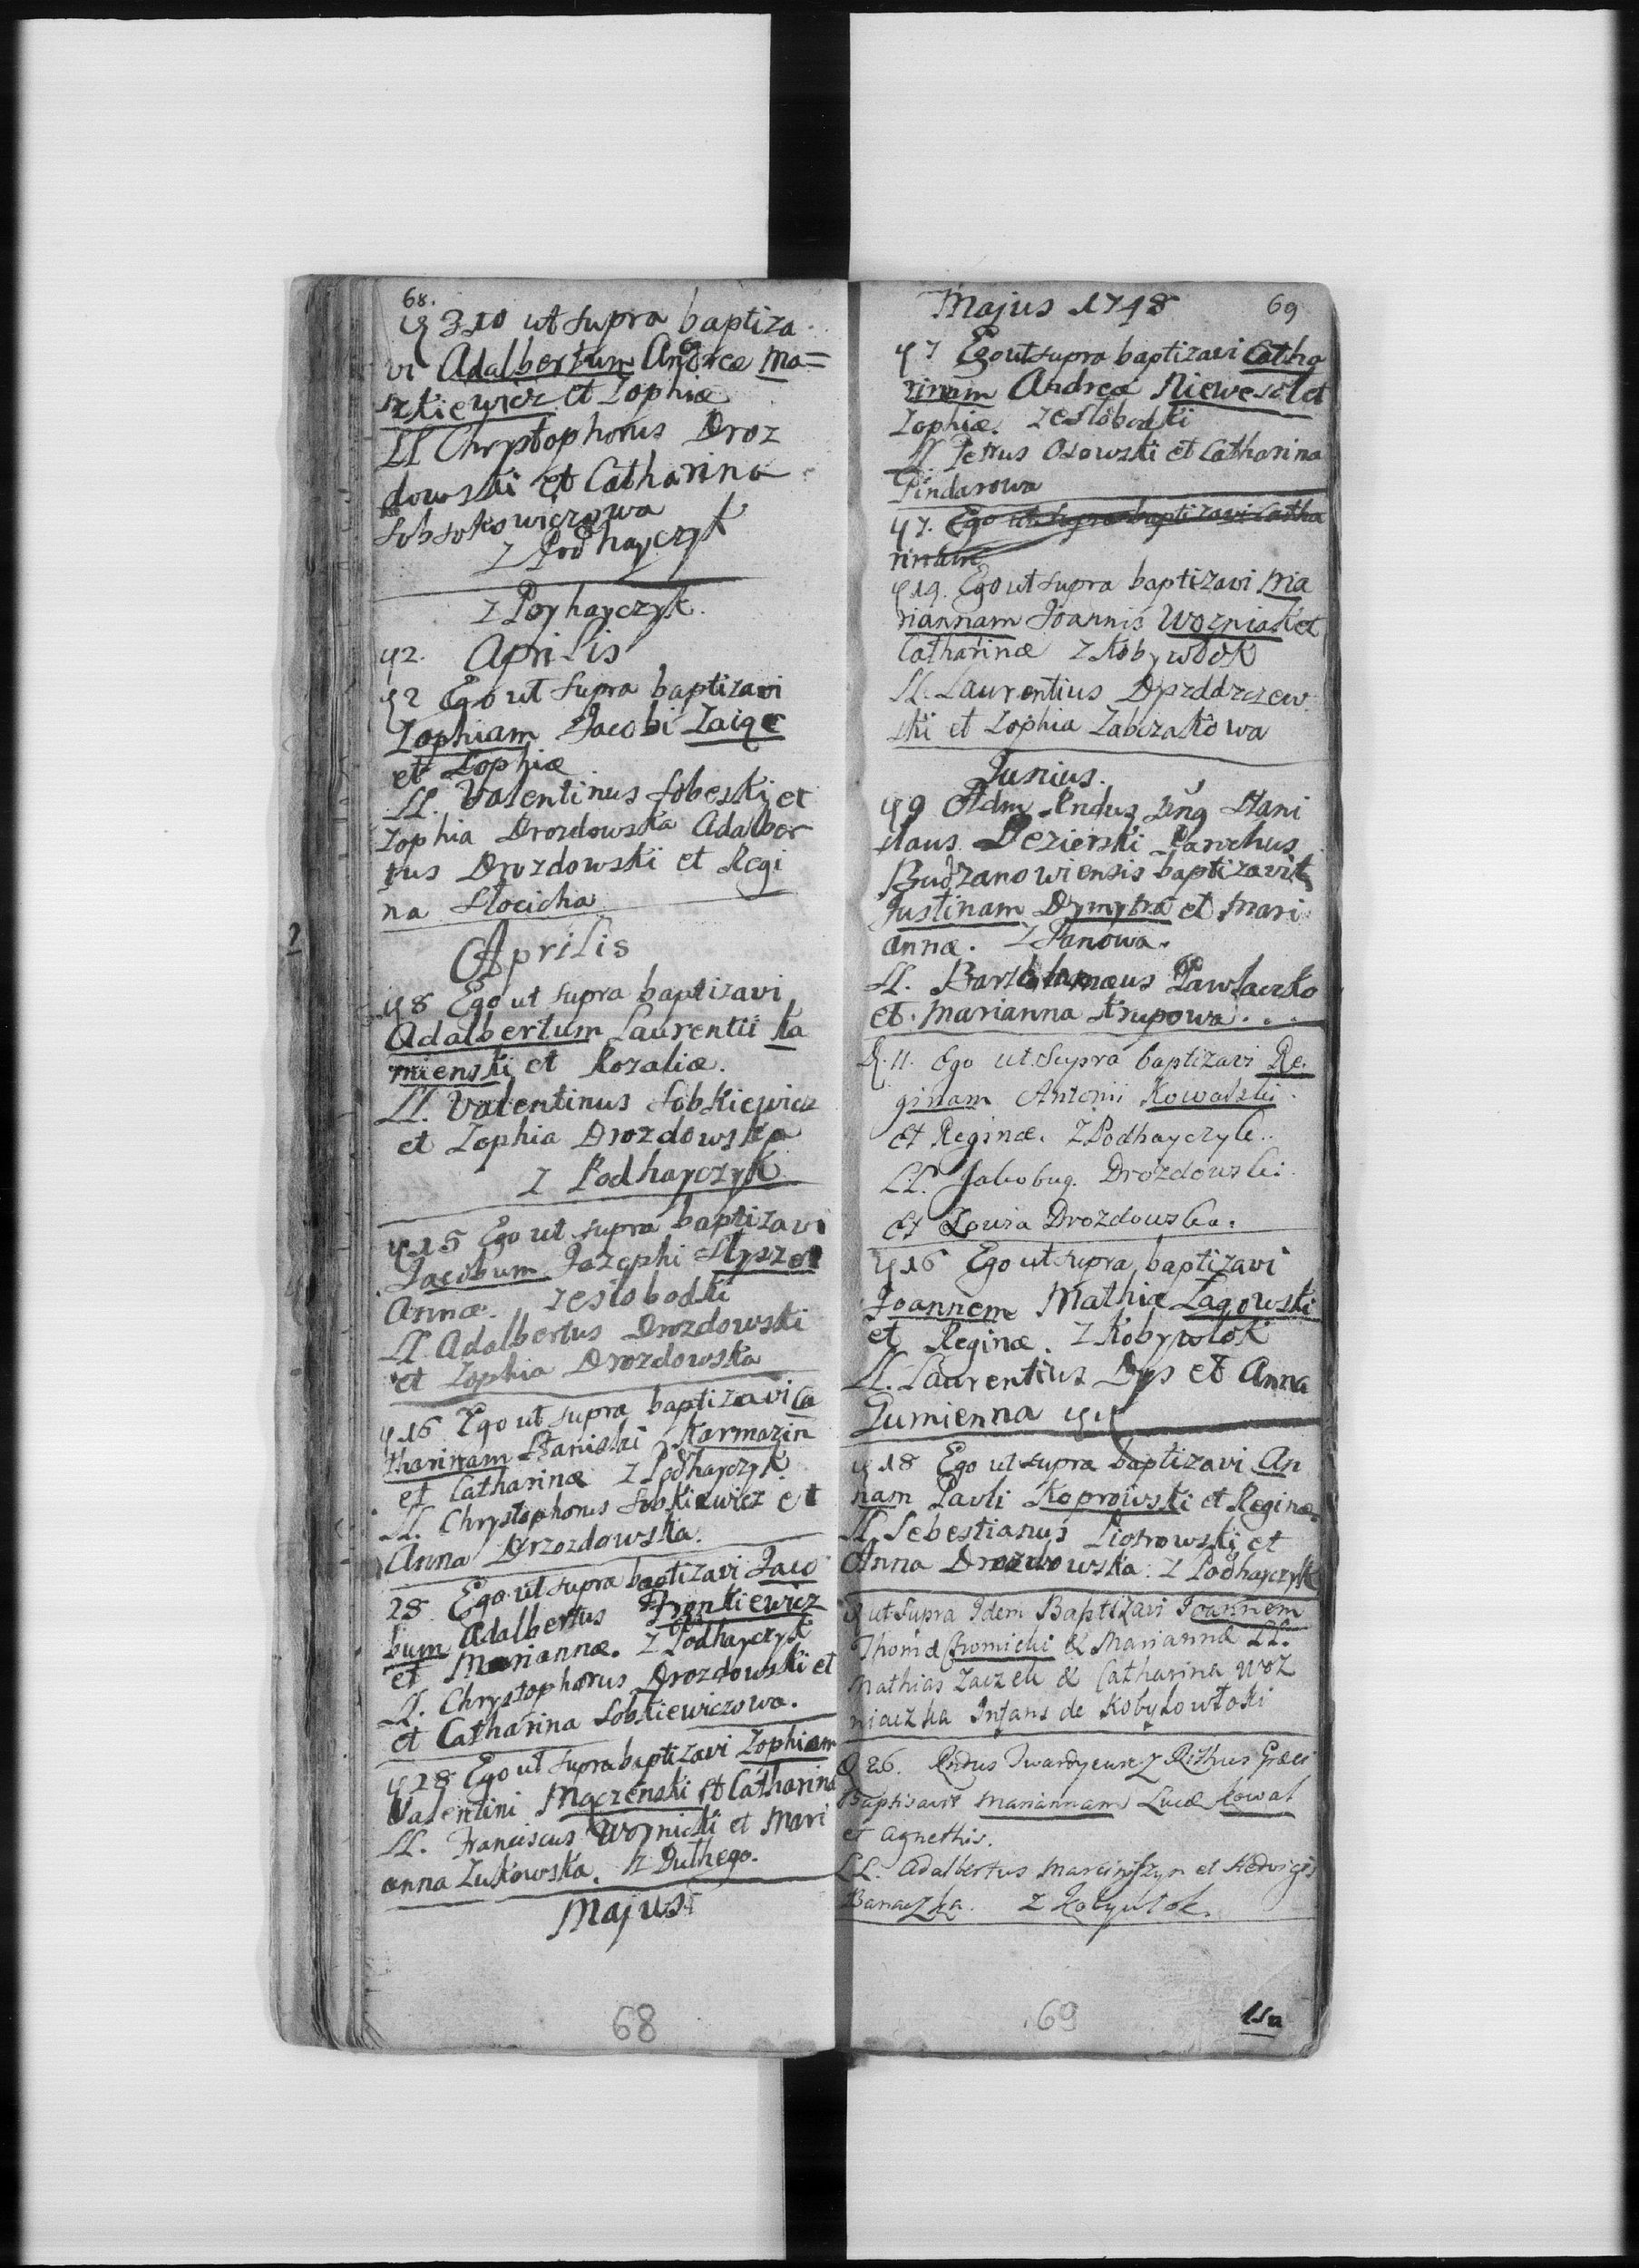 68.
310 ut supra baptiza
vi Adalbertum Andreæ Ma=
szkiewicz et Zophiæ
LL Chrystophorus Droz
dowski et Catharina
Sobsokowiczowa
Z Podhayczyk
Z Poyhayczyk.
42. Aprilis
42 Ego ut supra baptizavi
Zophiam Jacobi Zaiqc
et Zophiæ
LL. Valentinus Sobeski et
Zophia Drozdowska Adalber
tus Drozdowski et Regi
na Stocicha
Aprilis
48 Ego ut supra baptizavi
Adalbertum Laurentii Ka
mienski et Rozaliæ.
LL. Valentinus Sobkiewicz
et Zophia Drozdowska
Z Podhayczyk
415 Ego ut supra baptizavi
Jacobum Jozephi Slysz et
Annæ. ze Slobodki
LL Adalbertus Drozdowski
et Zophia Drozdowska
416 Ego ut supra baptizavi Ca
tharinam Stanislai Karmazin
et Catharinæ Z Podhayczyk
LL. Chrystophorus Sobkiewicz et
Anna Drzozdowska.
28 Ego ut supra baptizavi Jaco
bum Adalbertus Fronkiewicz
et Mariannæ. Z Podhayczyk
LL. Chrystophorus Drozdowski et
et Catharina Sobkiewiczowa.
428 Ego ut supra baptizavi Zophiam
Valentini Mączenski et Catharina
LL. Franciscus Woynicki et Mari
anna Zukowska. Z Dulhego.
Majus
68
Majus 1748 69
47 Ego ut supra baptizavi Catha
rinam Andreæ Niewesol et
Zophiæ. ze Slobodki
LL Petrus Osowski et Catharina
Pindarowa
47. Ego ut supra baptizavi Catha
rinam
419. Ego ut supra baptizavi Ma
riannam Joannis Wozniak et
Catharinæ Z Kobywlok
LL. Laurentius Dyzddrzew
ski et Zophia Zabczakowa
Junius.
49 Adm Rndus Stani
slaus Jezierski Parochus
Budzanowiensis baptizavit
Justinam Dymytra et Mari
annæ. Z Janowa.
LL. Bartholomæus Pawlaczko
et Marianna Strupowa...
11. Ego ut Supra baptizavi Re
ginam Antonii Kowalski
et Reginæ. Z Podhayczyk..
LL. Jakobus Drozdowski
et Lovia Drozdowska.
416 Ego ut supra baptizavi
Joannem Mathiæ Lagowski
et Reginæ. Z Kobywlok
LL. Laurentius Dys et Anna
Gumienna
418 Ego ut supra baptizavi An
nam Pauli Koprowski et Reginæ
LL Sebestianus Piotrowski et
Anna Drozdowska. Z Podhayczyk
ut Supra Idem Baptizavi Joannem
Thomæ Chomicki & Mariannæ LL.
Mathias Zaczek & Catharina Woz
niaczka Infans de Kobyłowłoki
26. Rndus Ritus Græci
Baptisavit Mariannam Lucæ Kowal
et Agnethis.
LL. Adalbertus Marciniszyn et Hedvigis
Banaczka. Z Kobywlok.
69